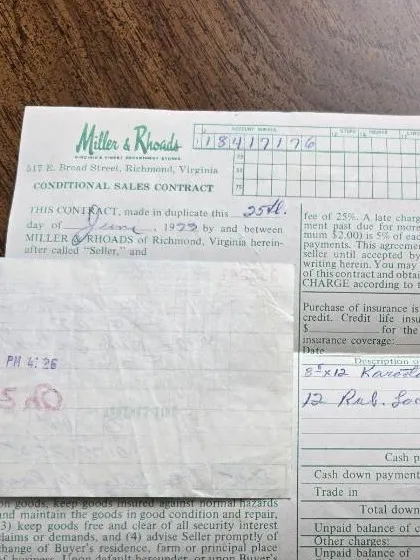 Miller & Rhoads
VIRGINIA'S FINEST DEPARTMENT STORES
517 E. Broad Street, Richmond, Virginia
CONDITIONAL SALES CONTRACT
ACCOUNT NUMBER
18417176
THIS CONTRACT, made in duplicate this 25th.
day of June, 1972 by and between
MILLER & RHOADS of Richmond, Virginia herein-
after called "Seller," and
fee of 25%. A late charg
ment past due for more
mum $2.00) is 5% of eac
payments. This agreemen
seller until accepted by
writing herein. You may
of this contract and obtai
CHARGE according to t
Purchase of insurance is
credit. Credit life insu
$ for the
insurance coverage:
Date
PM 4:26
Description o
12 Rub.
Cash p
Cash down payment
Trade in
Total down
Unpaid balance of c
Other charges:
Unpaid balance of
on goods, keep goods insured against normal hazards
and maintain the goods in good condition and repair,
3) keep goods free and clear of all security interest
claims or demands, and (4) advise Seller promptly of
change of Buyer's residence, farm or principal place
of business. Upon default hereunder, or upon Buyer's